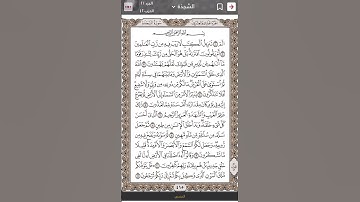 السَّجدَة
الجزء ٢١
بِسۡمِ ٱللَّهِ ٱلرَّحۡمَٰنِ ٱلرَّحِيمِ
الٓمٓ ١ تَنزِيلُ ٱلۡكِتَٰبِ لَا رَيۡبَ فِيهِ مِن رَّبِّ ٱلۡعَٰلَمِينَ
٢ أَمۡ يَقُولُونَ ٱفۡتَرَىٰهُۚ بَلۡ هُوَ ٱلۡحَقُّ مِن رَّبِّكَ لِتُنذِرَ قَوۡمٗا
مَّآ أَتَىٰهُم مِّن نَّذِيرٖ مِّن قَبۡلِكَ لَعَلَّهُمۡ يَهۡتَدُونَ ٣ ٱللَّهُ
ٱلَّذِي خَلَقَ ٱلسَّمَٰوَٰتِ وَٱلۡأَرۡضَ وَمَا بَيۡنَهُمَا فِي سِتَّةِ أَيَّامٖ
ثُمَّ ٱسۡتَوَىٰ عَلَى ٱلۡعَرۡشِۖ مَا لَكُم مِّن دُونِهِۦ مِن وَلِيّٖ وَلَا شَفِيعٍۚ
أَفَلَا تَتَذَكَّرُونَ ٤ يُدَبِّرُ ٱلۡأَمۡرَ مِنَ ٱلسَّمَآءِ إِلَى ٱلۡأَرۡضِ ثُمَّ يَعۡرُجُ
إِلَيۡهِ فِي يَوۡمٖ كَانَ مِقۡدَارُهُۥٓ أَلۡفَ سَنَةٖ مِّمَّا تَعُدُّونَ ٥ ذَٰلِكَ
عَٰلِمُ ٱلۡغَيۡبِ وَٱلشَّهَٰدَةِ ٱلۡعَزِيزُ ٱلرَّحِيمُ ٦ ٱلَّذِيٓ أَحۡسَنَ
كُلَّ شَيۡءٍ خَلَقَهُۥۖ وَبَدَأَ خَلۡقَ ٱلۡإِنسَٰنِ مِن طِينٖ ٧ ثُمَّ جَعَلَ
نَسۡلَهُۥ مِن سُلَٰلَةٖ مِّن مَّآءٖ مَّهِينٖ ٨ ثُمَّ سَوَّىٰهُ وَنَفَخَ فِيهِ مِن
رُّوحِهِۦۖ وَجَعَلَ لَكُمُ ٱلسَّمۡعَ وَٱلۡأَبۡصَٰرَ وَٱلۡأَفۡـِٔدَةَۚ قَلِيلٗا
مَّا تَشۡكُرُونَ ٩ وَقَالُوٓاْ أَءِذَا ضَلَلۡنَا فِي ٱلۡأَرۡضِ أَءِنَّا لَفِي
خَلۡقٖ جَدِيدِۭۚ بَلۡ هُم بِلِقَآءِ رَبِّهِمۡ كَٰفِرُونَ ١٠ ۞ قُلۡ يَتَوَفَّىٰكُم
مَّلَكُ ٱلۡمَوۡتِ ٱلَّذِي وُكِّلَ بِكُمۡ ثُمَّ إِلَىٰ رَبِّكُمۡ تُرۡجَعُونَ ١١
٤١٥